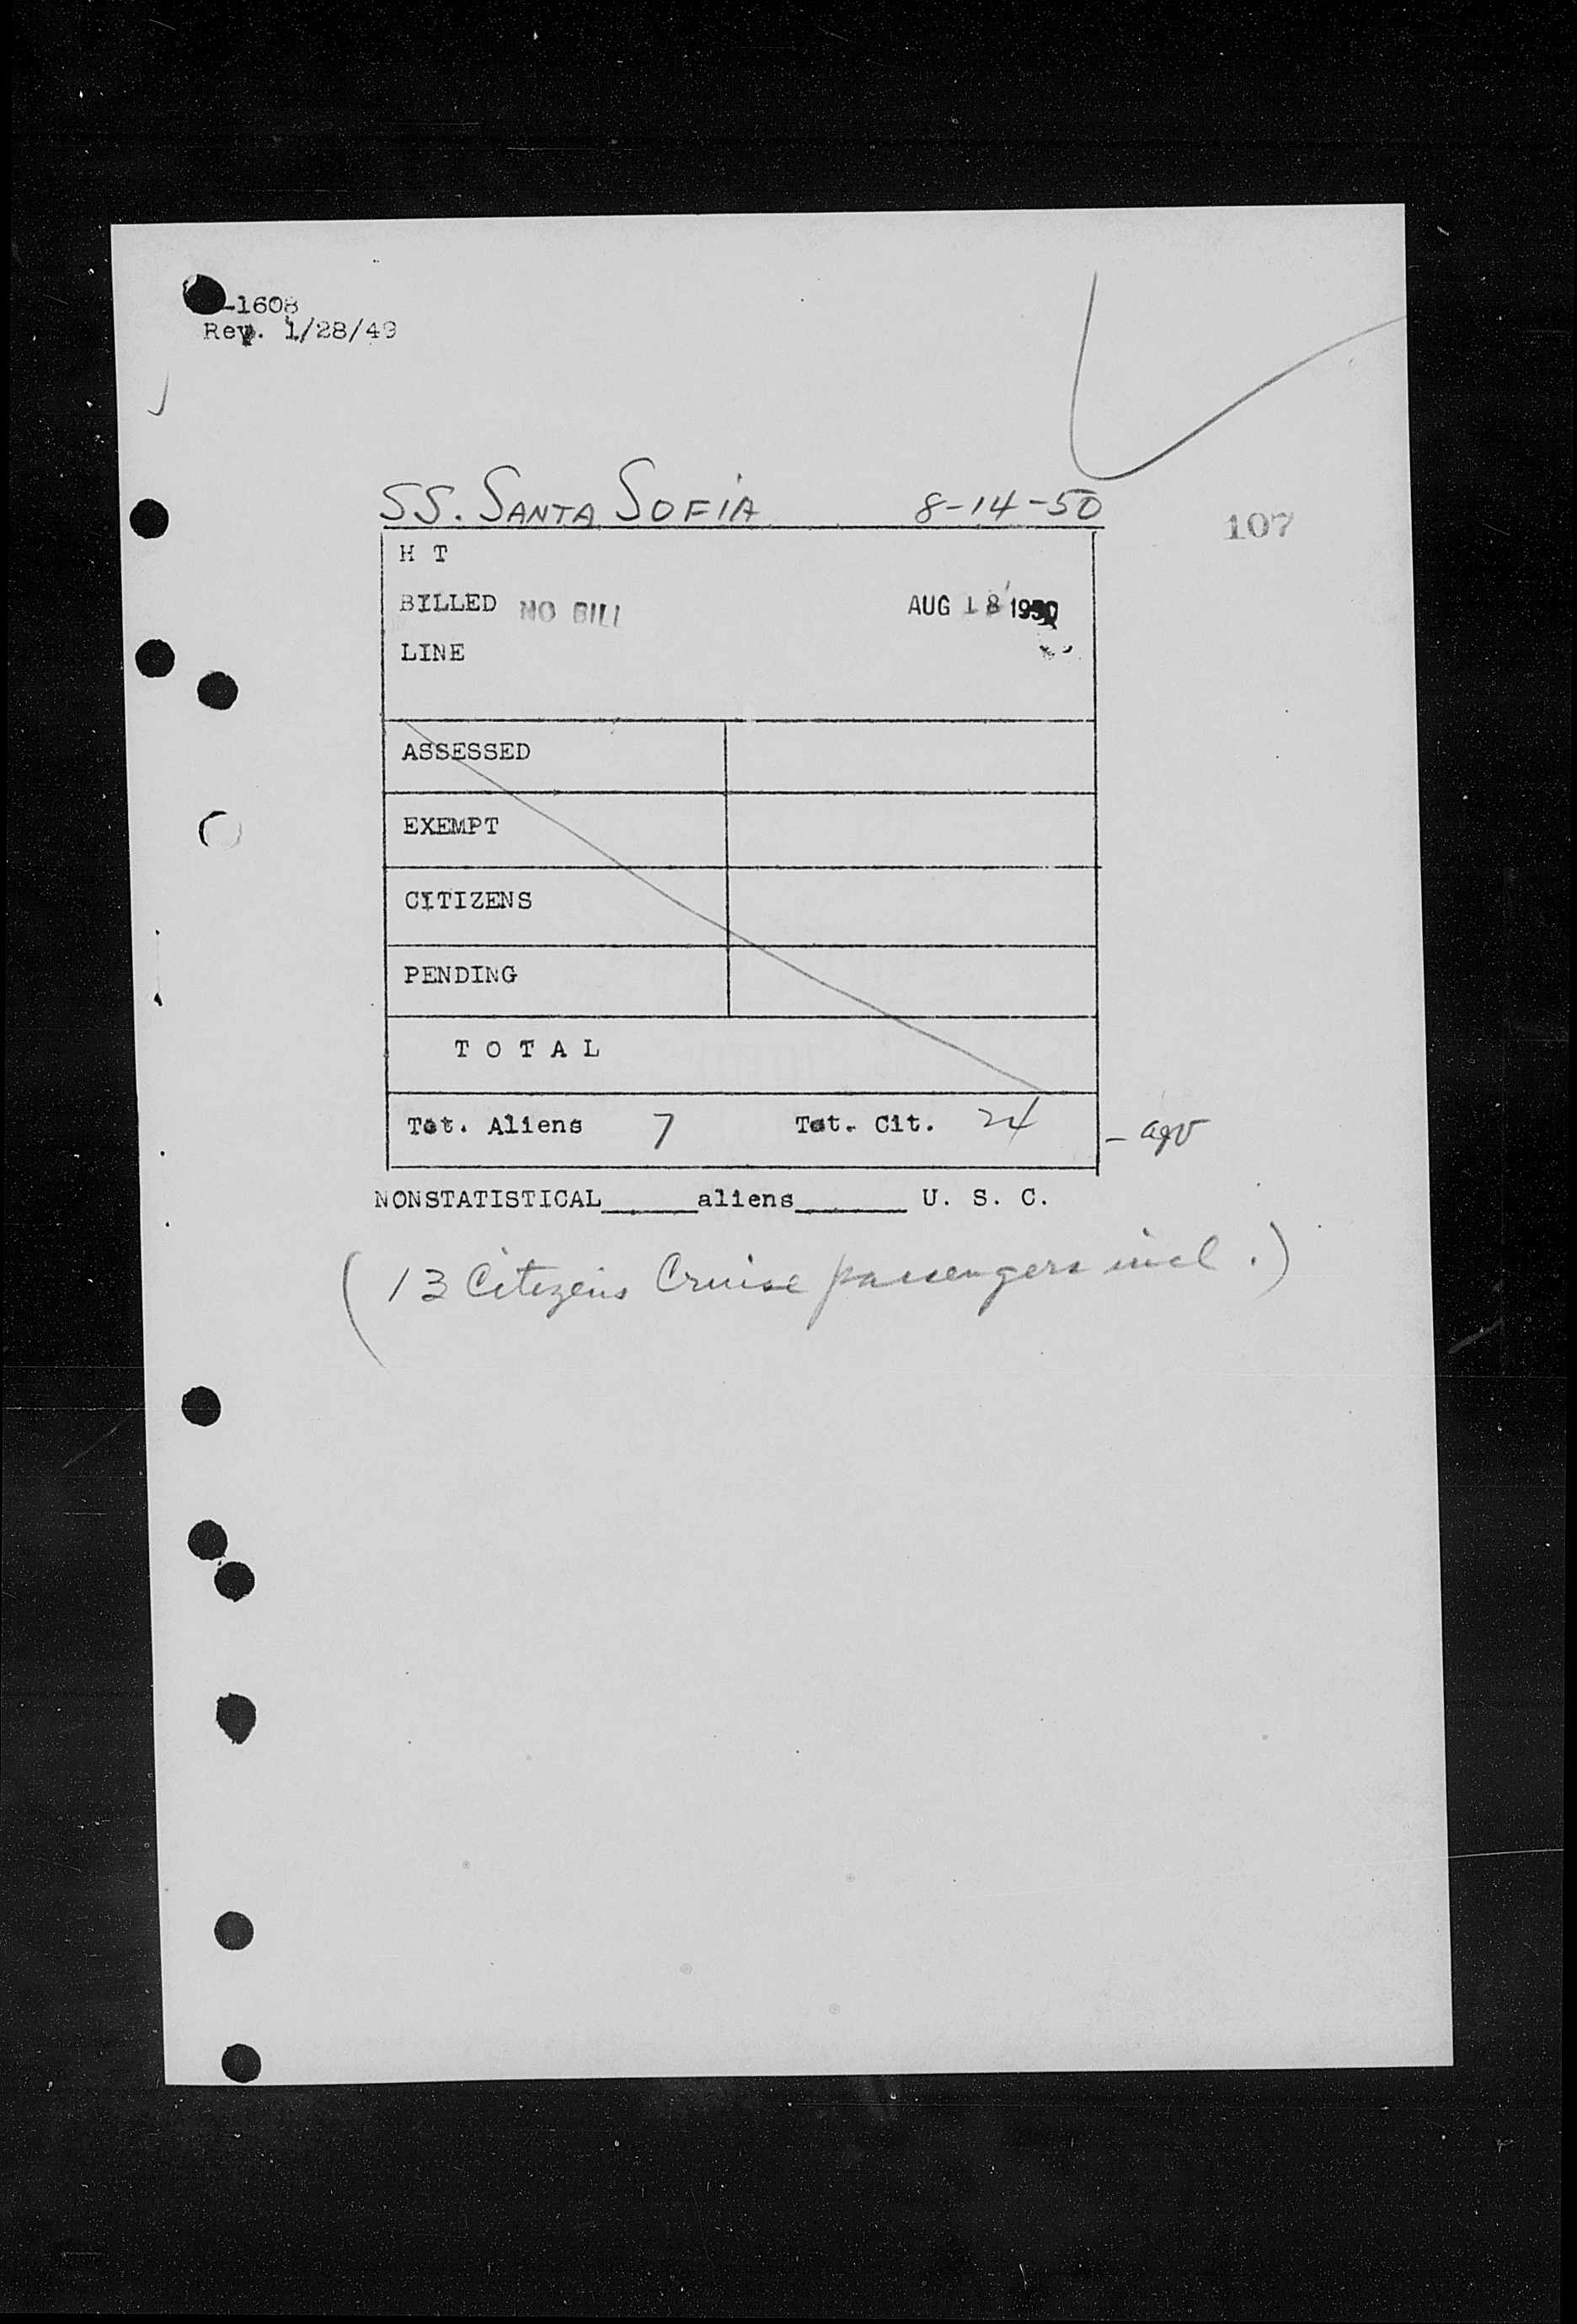 -1608
Rev. 1/28/49
SS. SANTA SOFIA 8-14-50
107
H T
BILLED NO BILL AUG 18 1950
LINE
ASSESSED
EXEMPT
CITIZENS
PENDING
T O T A L
Tot. Aliens 7 Tot. Cit. 24
NONSTATISTICAL_____aliens______ U. S. C.
(13 Citizens Cruise passengers incl.)